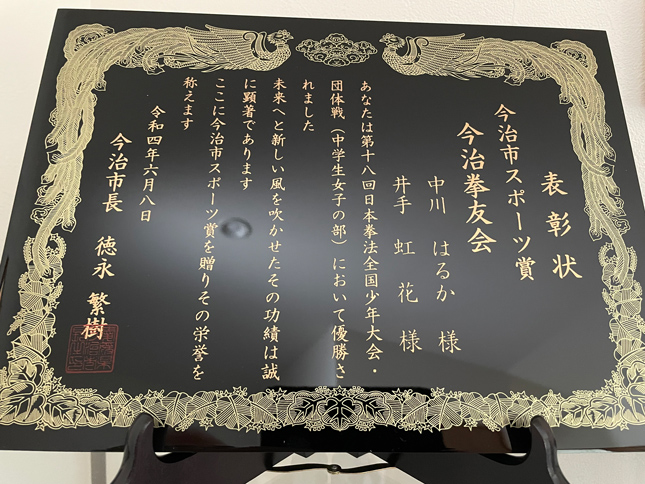 表彰状
今治市スポーツ賞
今治拳友会
中川 はるか 様
井手 虹花 様
あなたは第十八回日本拳法全国少年大会・
団体戦（中学生女子の部）において優勝さ
れました
未来へと新しい風を吹かせたその功績は誠
に顕著であります
ここに今治市スポーツ賞を贈りその栄誉を
称えます
令和四年六月八日
今治市長 徳永 繁樹